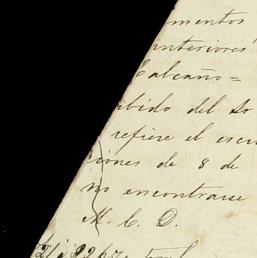 mentos
anteriores
Calcaño =
ibido del Sr
refiere el escri
iones de 8 de
no encontrarse
M. C. D.